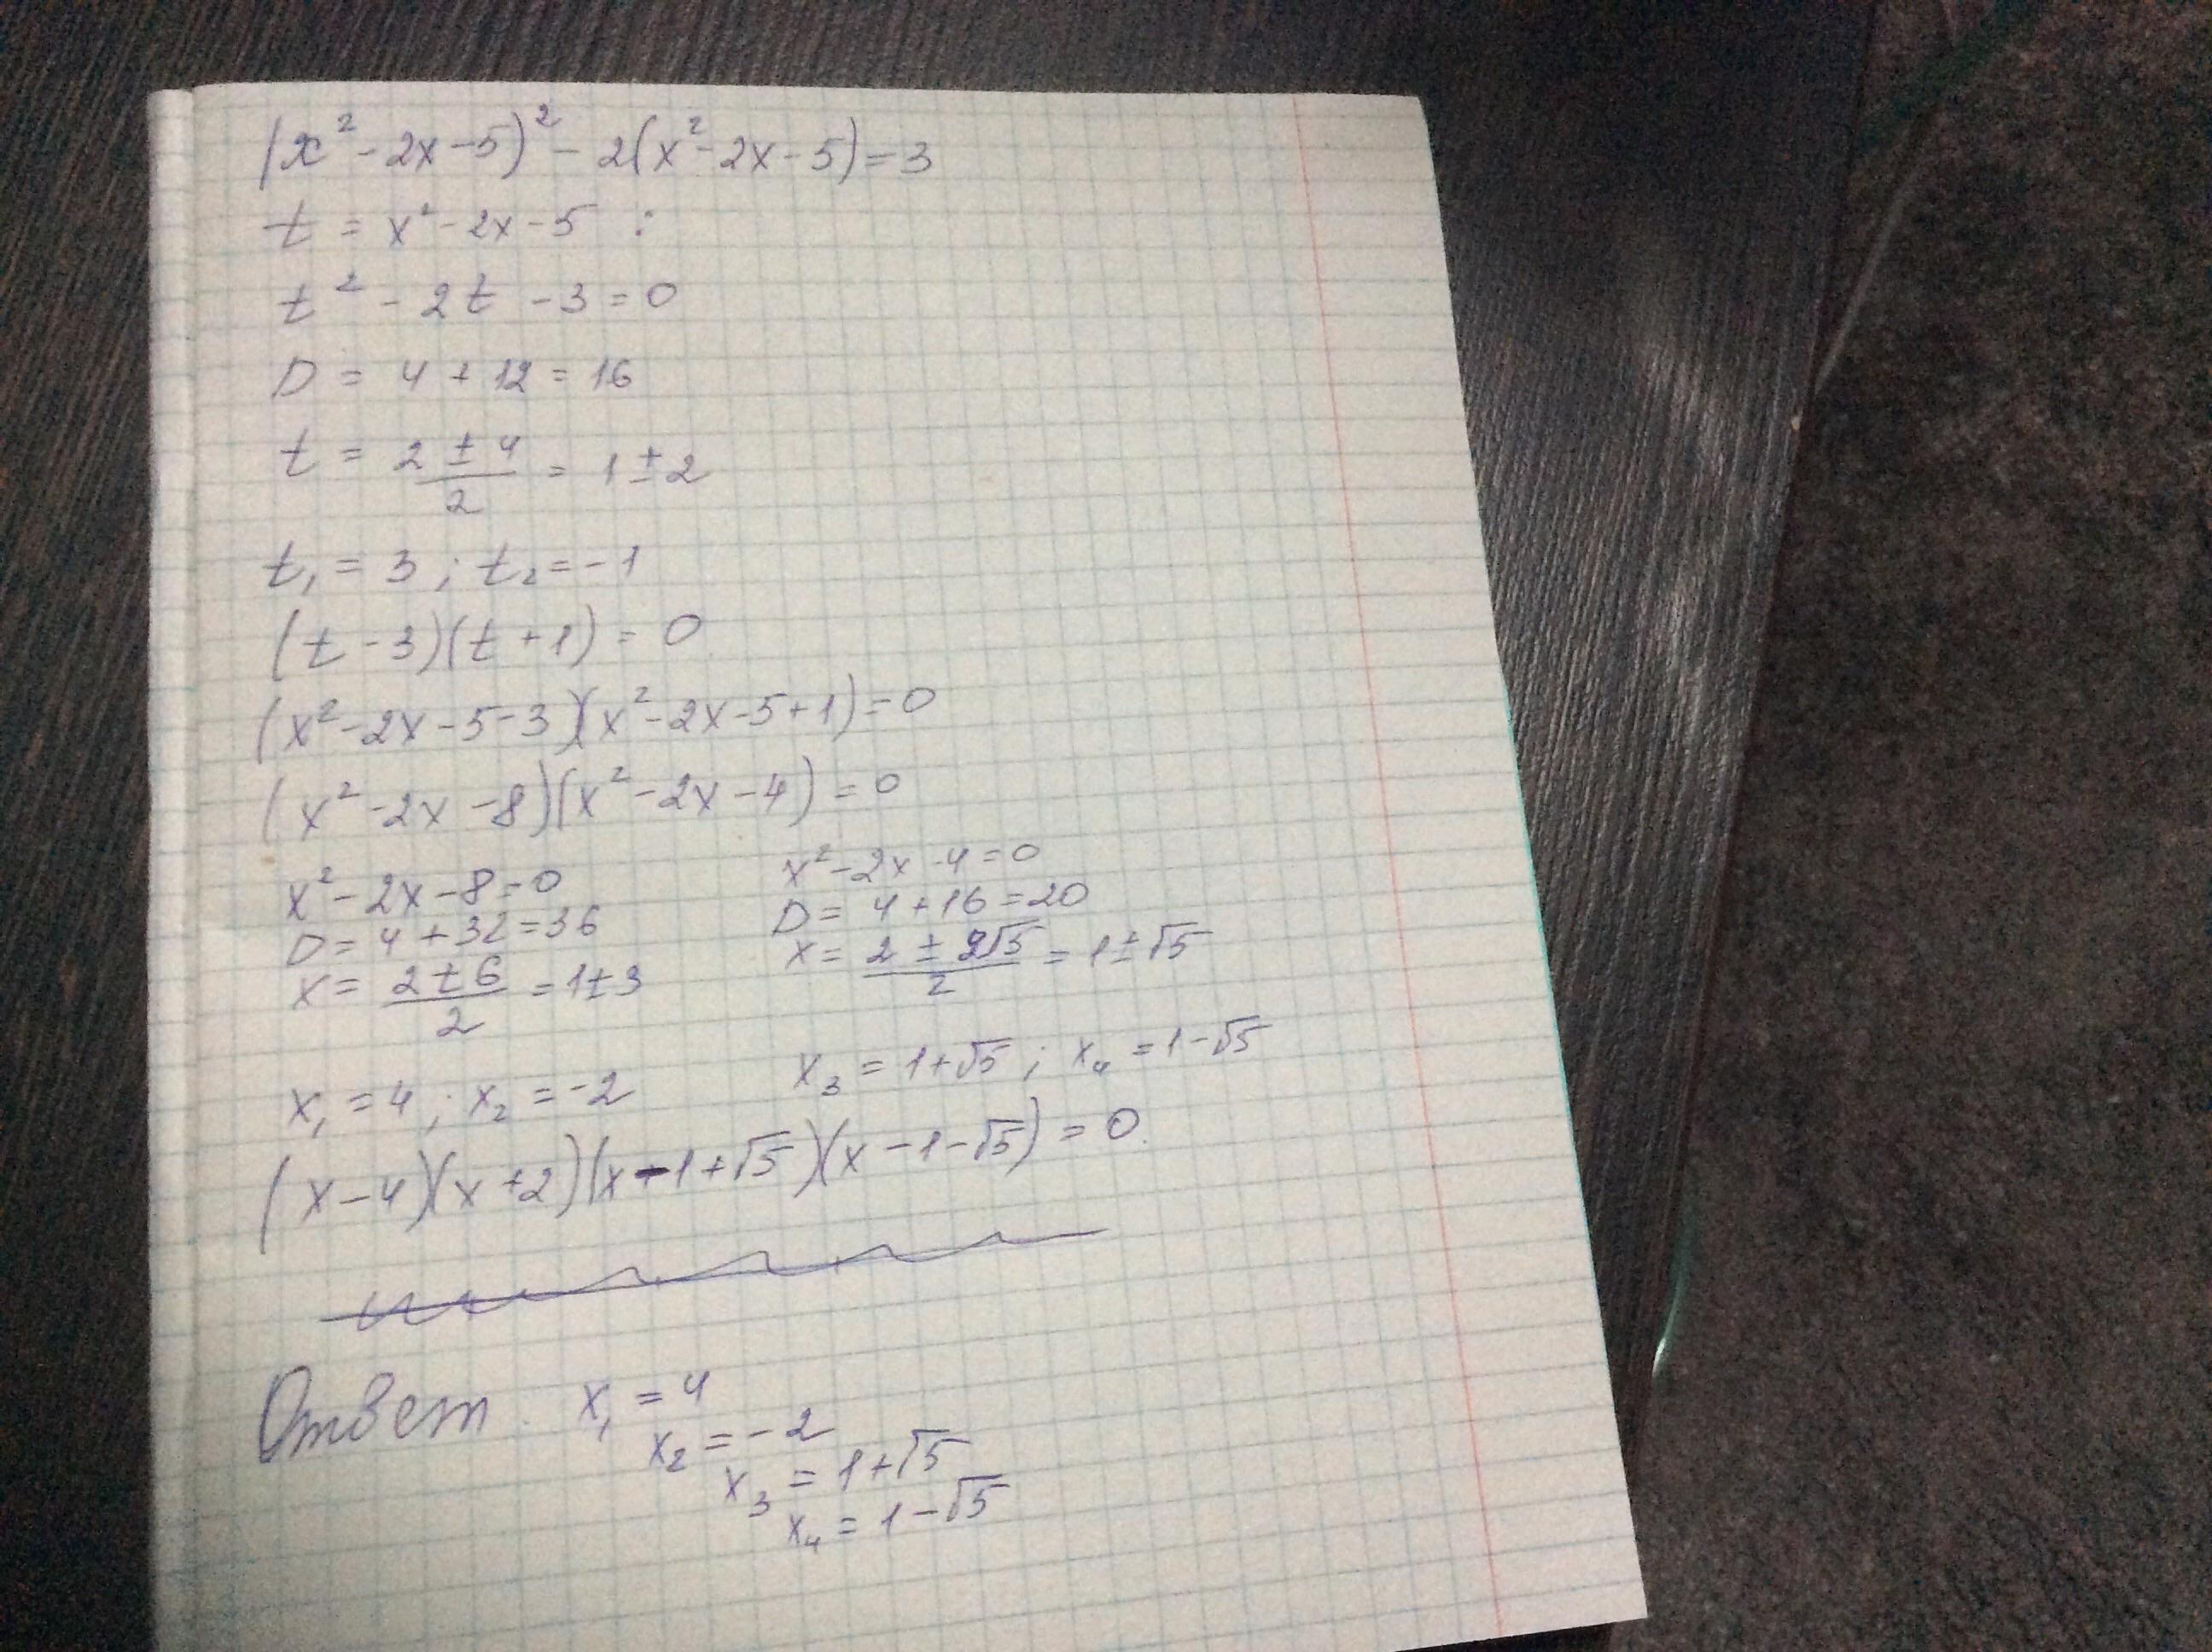 (x² - 2x - 5)² - 2(x² - 2x - 5) = 3
t = x² - 2x - 5 :
t² - 2t - 3 = 0
D = 4 + 12 = 16
t = (2 ± 4)/2 = 1 ± 2
t₁ = 3 ; t₂ = -1
(t - 3)(t + 1) = 0
(x² - 2x - 5 - 3)(x² - 2x - 5 + 1) = 0
(x² - 2x - 8)(x² - 2x - 4) = 0
x² - 2x - 8 = 0
D = 4 + 32 = 36
x = (2 ± 6)/2 = 1 ± 3
x₁ = 4 ; x₂ = -2
x² - 2x - 4 = 0
D = 4 + 16 = 20
x = (2 ± 2√5)/2 = 1 ± √5
x₃ = 1 + √5 ; x₄ = 1 - √5
(x - 4)(x + 2)(x - 1 + √5)(x - 1 - √5) = 0.
Ответ. x₁ = 4
x₂ = -2
x₃ = 1 + √5
x₄ = 1 - √5